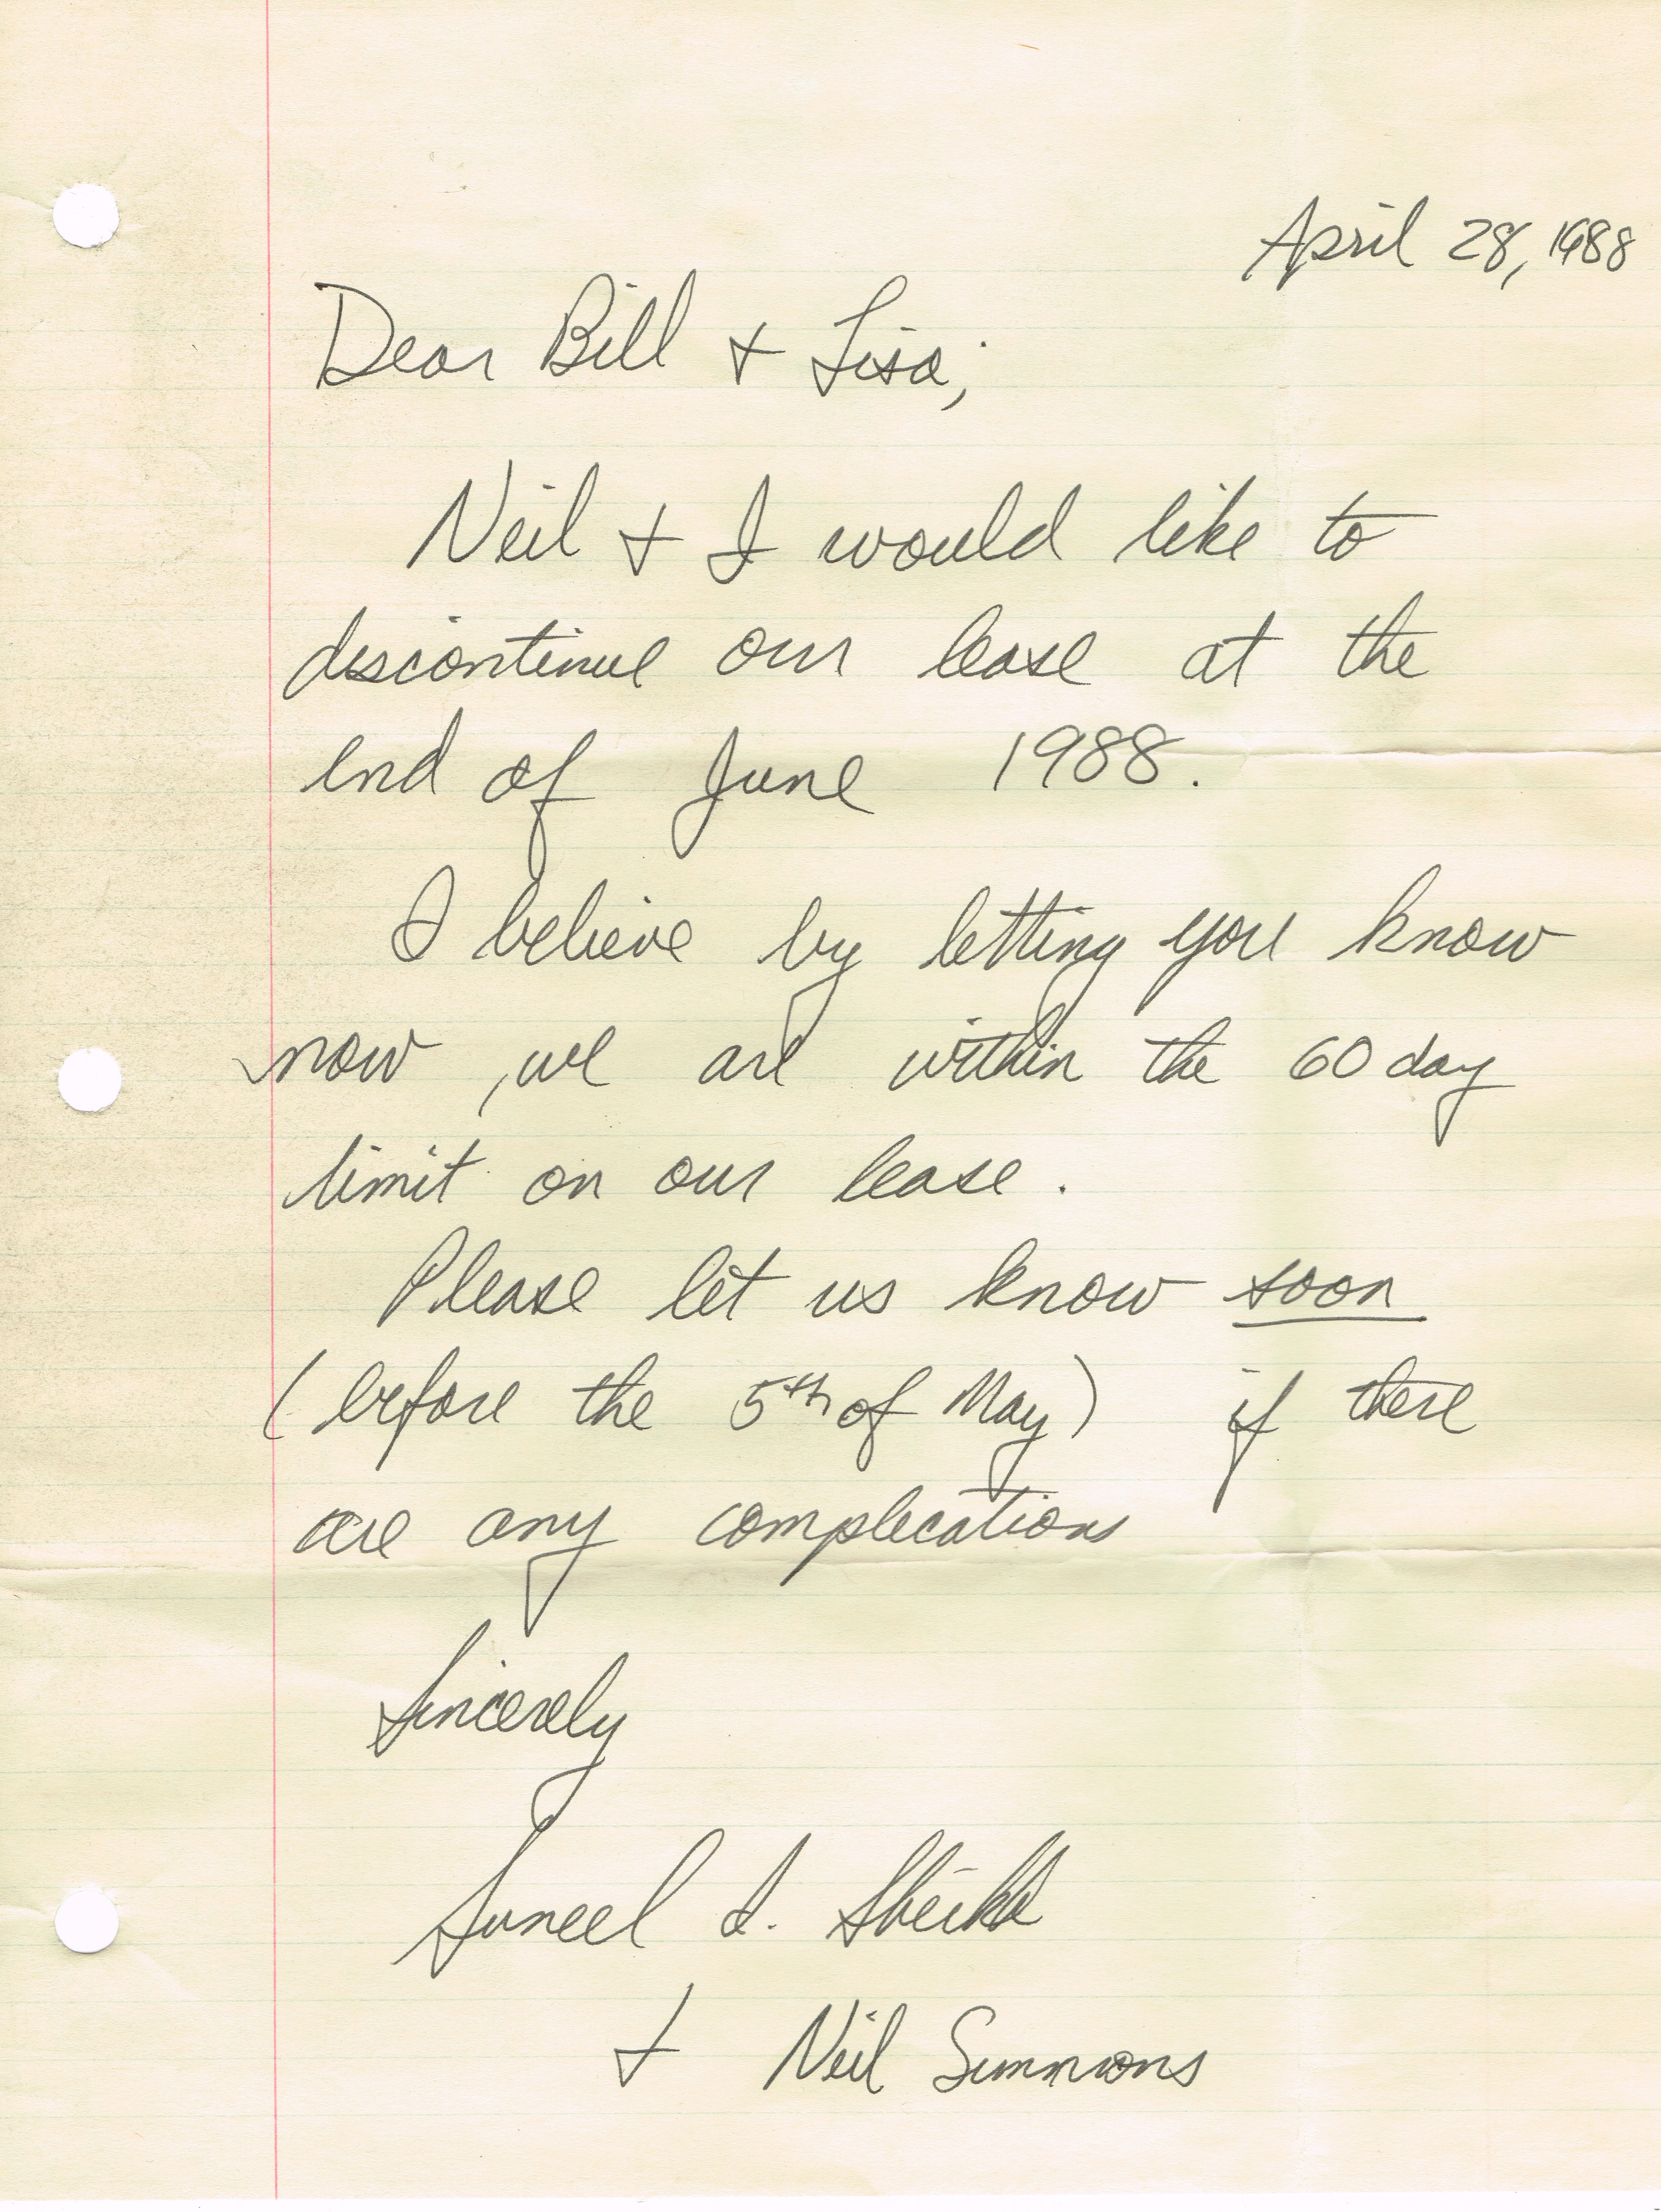 April 28, 1988
Dear Bill + Lisa;
Neil + I would like to
discontinue our lease at the
end of June 1988.
I believe by letting you know
now, we are within the 60 day
limit on our lease.
Please let us know soon
(before the 5th of May) if there
are any complications
Sincerely
Suneel I. Sheikh
+ Neil Simmons